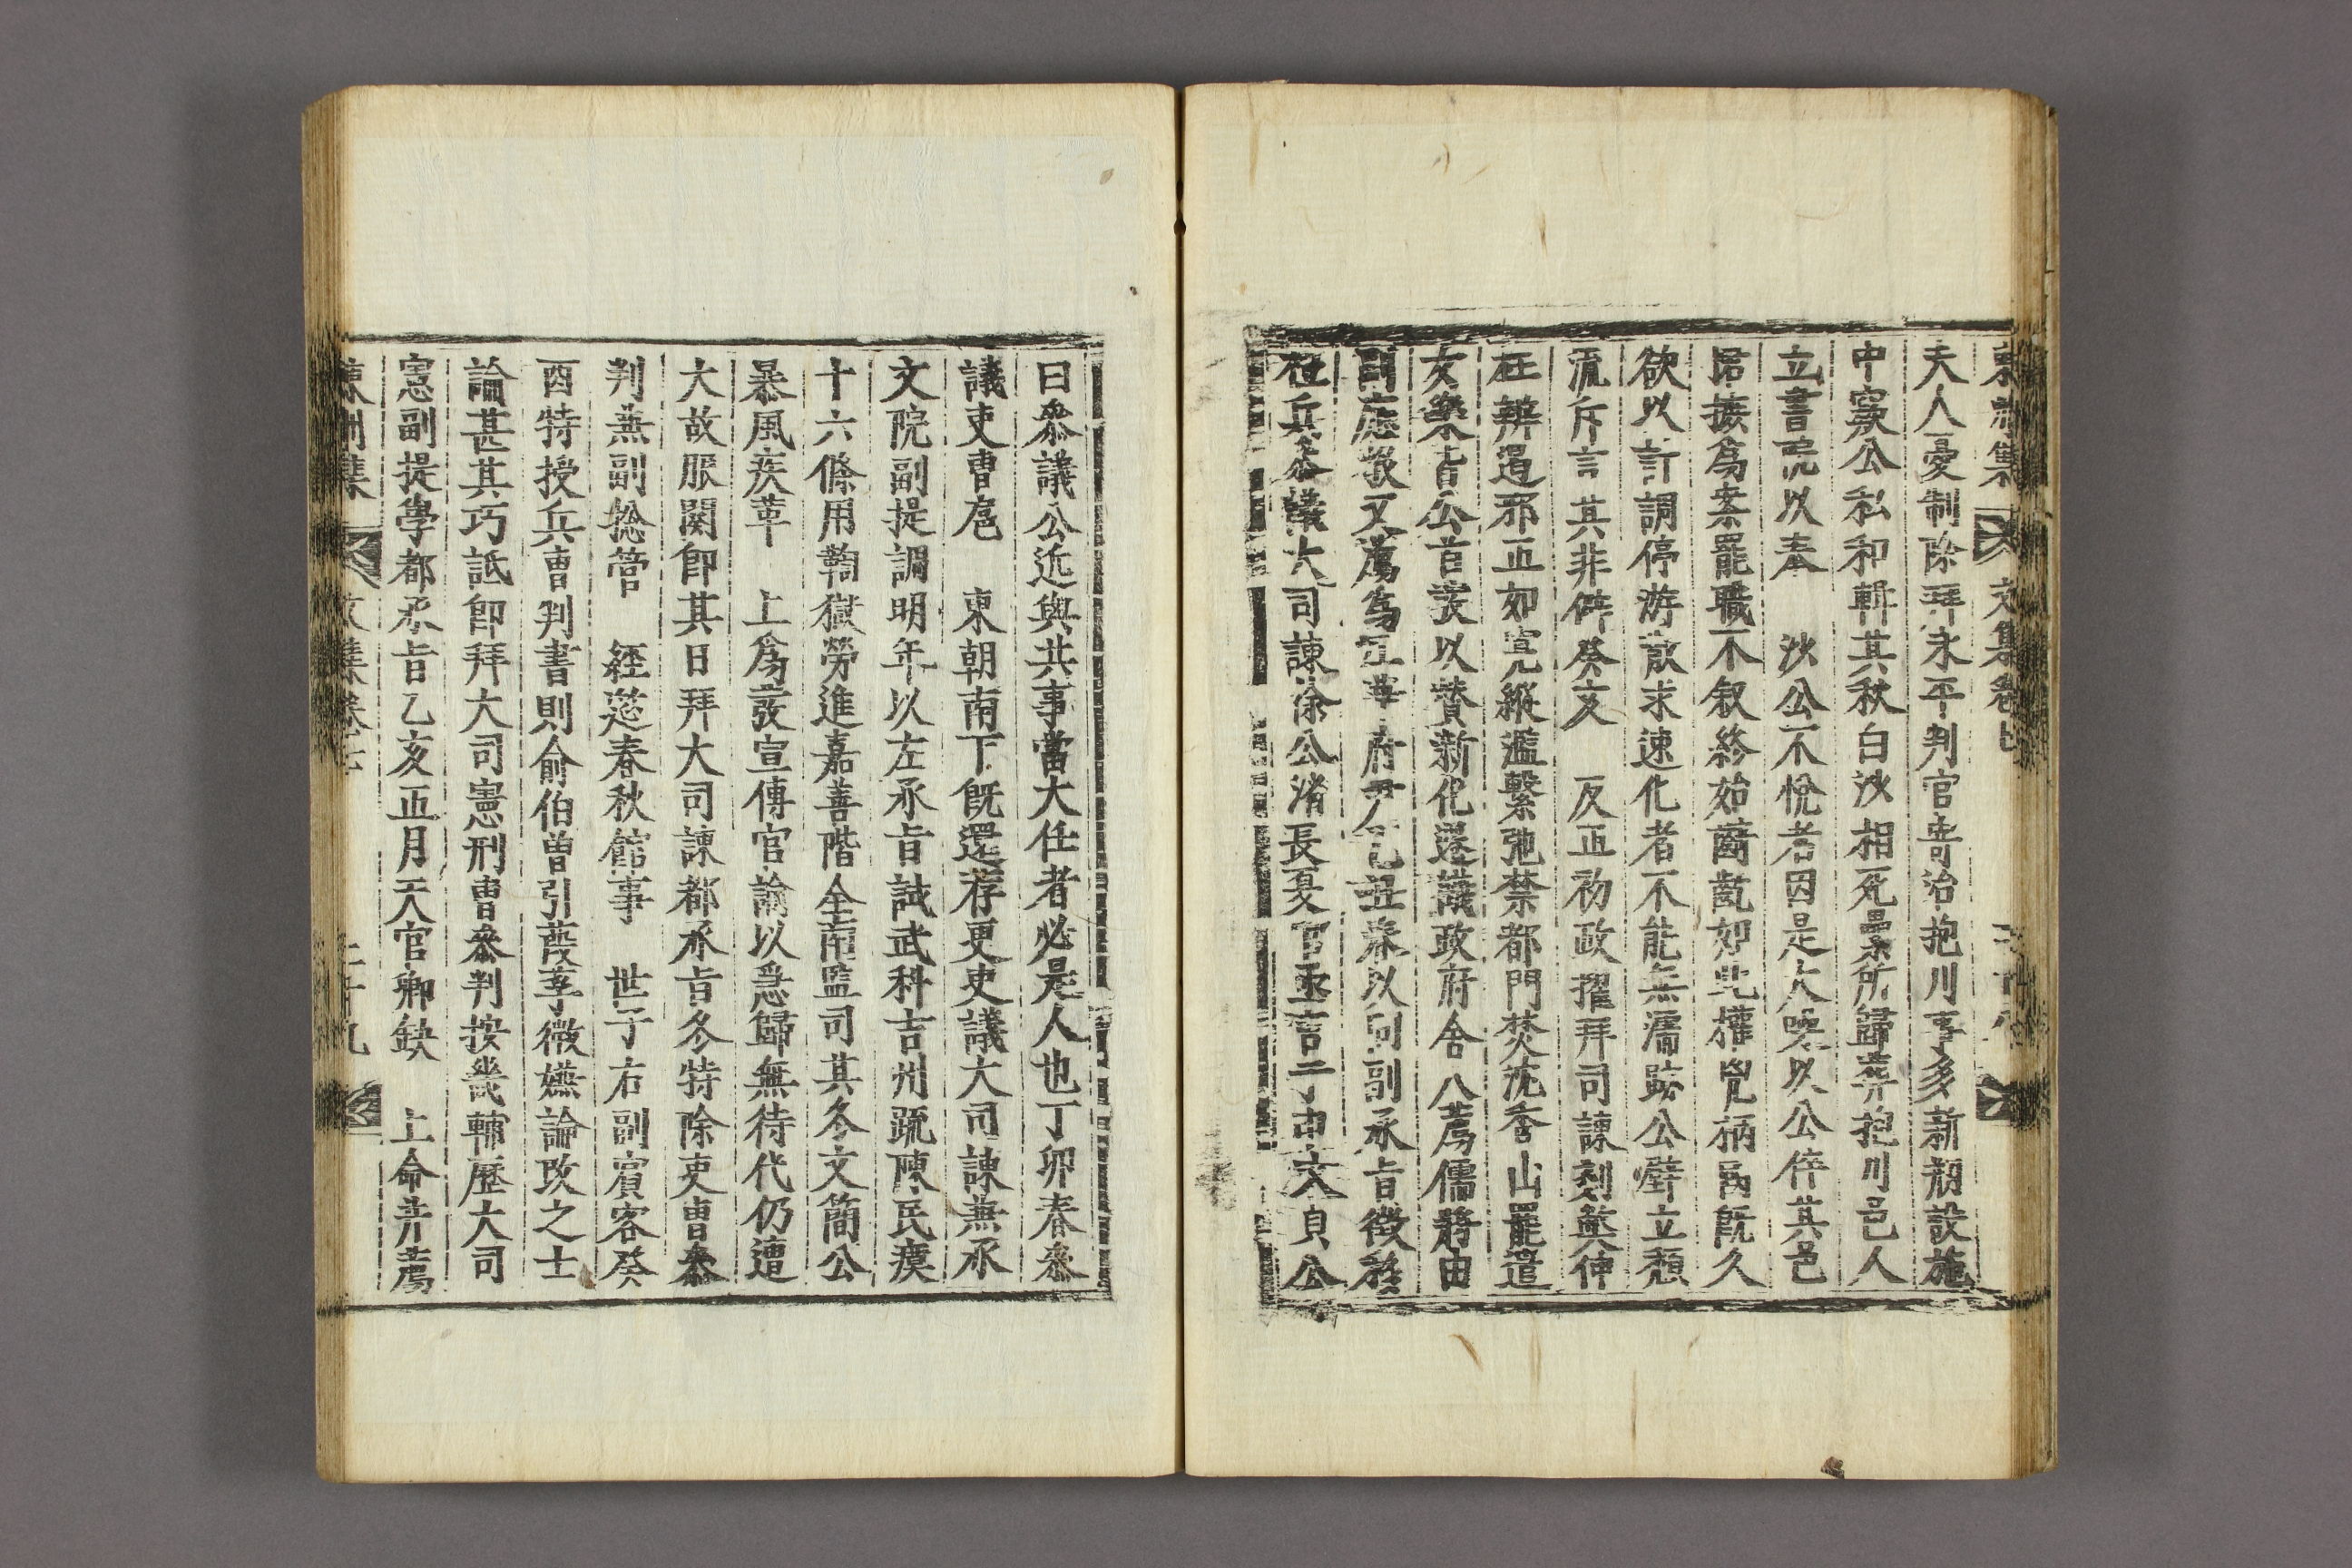 夫人憂制除拜永平判官寄治抱川事多新刱設施
中窾公私和輯其秋白沙相死橐所歸葬抱川邑人
立書院以奉 沙公不悅者因是大噪以公倅其邑
居接爲案罷職不叙終始齮齕如此權兇柄國旣久
欲以計調停游散求速化者不能無濡跡公壁立頹
流斥言其非僻癸亥 反正初政擢拜司諫剡弊伸
枉辨過邪正如寃縱濫繫弛禁都門焚沈香山罷遣
女樂皆公首發以贊新化還議政府舍人薦儒將由
副應敎又薦爲江華府尹乙丑春以同副承旨徵移
柱兵參議大司諫徐公渻長夏官亟言于申文貞公
曰參議公近與共事當大任者必是人也丁卯春參
議吏曹扈 東朝南下旣還荐更吏議大司諫兼承
文院副提調明年以左承旨試武科吉州疏陳民瘼
十六條用鞫獄勞進嘉善階全南監司其冬文簡公
暴風疾革 上爲發宣傳官諭以急歸無待代仍遭
大故服闋卽其日拜大司諫都承旨冬特除吏曹參
判兼副摠管 經筵春秋館事 世子右副賓客癸
酉特授兵曹判書則俞伯曾引葭莩微嬿論政之士
論甚其巧詆卽拜大司憲刑曹參判按畿輔歷大司
憲副提學都承旨乙亥正月天官卿缺 上命并薦
東州集 文集卷七